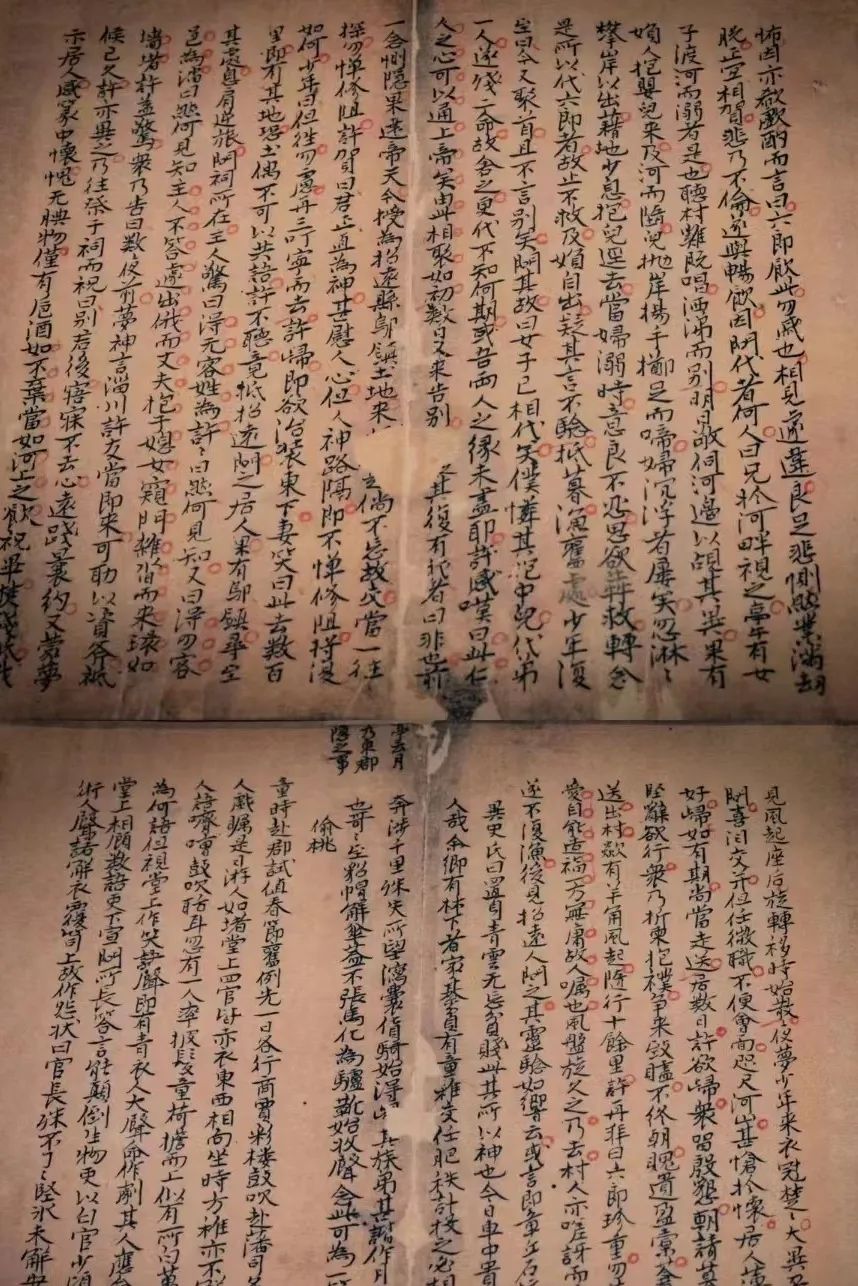 怖因亦欷歔酹而言曰六郎飲此勿慼也相見遽違良足悲惻然業滿劫
脫正宜相賀悲乃不倫遂與暢飲因問代者何人曰兄於河畔視之亭午有女
子渡河而溺者是也聽村雞既唱洒涕而別明日敬伺河邊以覘其異果有
婦人抱嬰兒來及河而墮兒拋岸揚手擲足而啼婦沉浮者屢矣忽淋〻
攀岸以出藉地少息抱兒逕去當婦溺時意良不忍思欲奔救轉念
是所以代六郎者故止不救及婦自出疑其言不驗抵暮漁舊處少年復
至曰今又聚首且不言別矣問其故曰女子已相代矣僕憐其抱中兒代弟
一人遂殘二命故舍之更代不知何期或吾兩人之緣未盡耶許感嘆曰此仁
人之心可以通上帝矣由此相聚如初數日又來告別 其復有代者曰非也前
一念惻隱果達帝天今授為招遠縣鄔鎮土地來 倘不忘故交當一往
探勿憚修阻許賀曰君正直為神甚慰人心但人神路隔即不憚修阻將復
如何少年曰但往勿慮再三叮嚀而去許歸即欲治裝東下妻笑曰此去數百
里即有其地恐土偶不可以共語許不聽竟抵招遠問之居人果有鄔鎮尋至
其處息肩逆旅問祠所在主人驚曰得无客姓為許〻曰然何見知又曰得勿客
邑為淄曰然何見知主人不答遽出俄而丈夫抱子媳女窺門雜沓而來環如
墻堵許益驚衆乃告曰數夜前夢神言淄川許友當即來可助以資斧祗
候已久許亦異之乃往祭于祠而祝曰別君後寤寐不去心遠踐曩約又蒙夢
示居人感篆中懷愧无腆物僅有卮酒如不棄當如河上之飲祝畢焚錢
見風起座后旋轉移時始散夜夢少年來衣冠楚〻大異
問喜淚交并但任微職不便會面咫尺河山甚愴於懷居人
好歸如有期尚當走送居數日許欲歸衆留殷懇朝請
堅辭欲行衆乃折柬抱襆爭來致贐不終朝餽遺盈橐
送出村歘有羊角風起隨行十餘里許再拜曰六郎珍重勿
愛自能造福一方無庸故人囑也風盤旋久之乃去村人亦嗟訝而
遂不復漁後見招遠人問之其靈驗如響云或言即章丘
異史氏曰置身青雲无忘貧賤此其所以神也今日車中貴
人哉余鄉有林下者家綦貧有童稚交任肥秩計投之必相
奔涉千里殊失所望瀉囊貨騎始得歸其族弟甚諧作月
也哥〻至貂帽解傘蓋不張馬化為驢靴始收聲念此可為一
偷桃
童時赴郡試值春節舊例先一日各行商賈彩樓鼓吹赴藩司
人戲矚是日游人如堵堂上四官皆赤衣東西相向坐時方稚亦不
人語嚌嘈鼓吹聒耳忽有一人率披髮童荷擔而上似有所白萬
為何語但視堂上作笑聲即有青衣人大聲命作劇其人應
堂上相顧數語吏下宣問所長答言能顛倒生物吏以白官少頃
術人聲諾解衣覆笥上故作怨狀曰官長殊不了〻堅冰未解